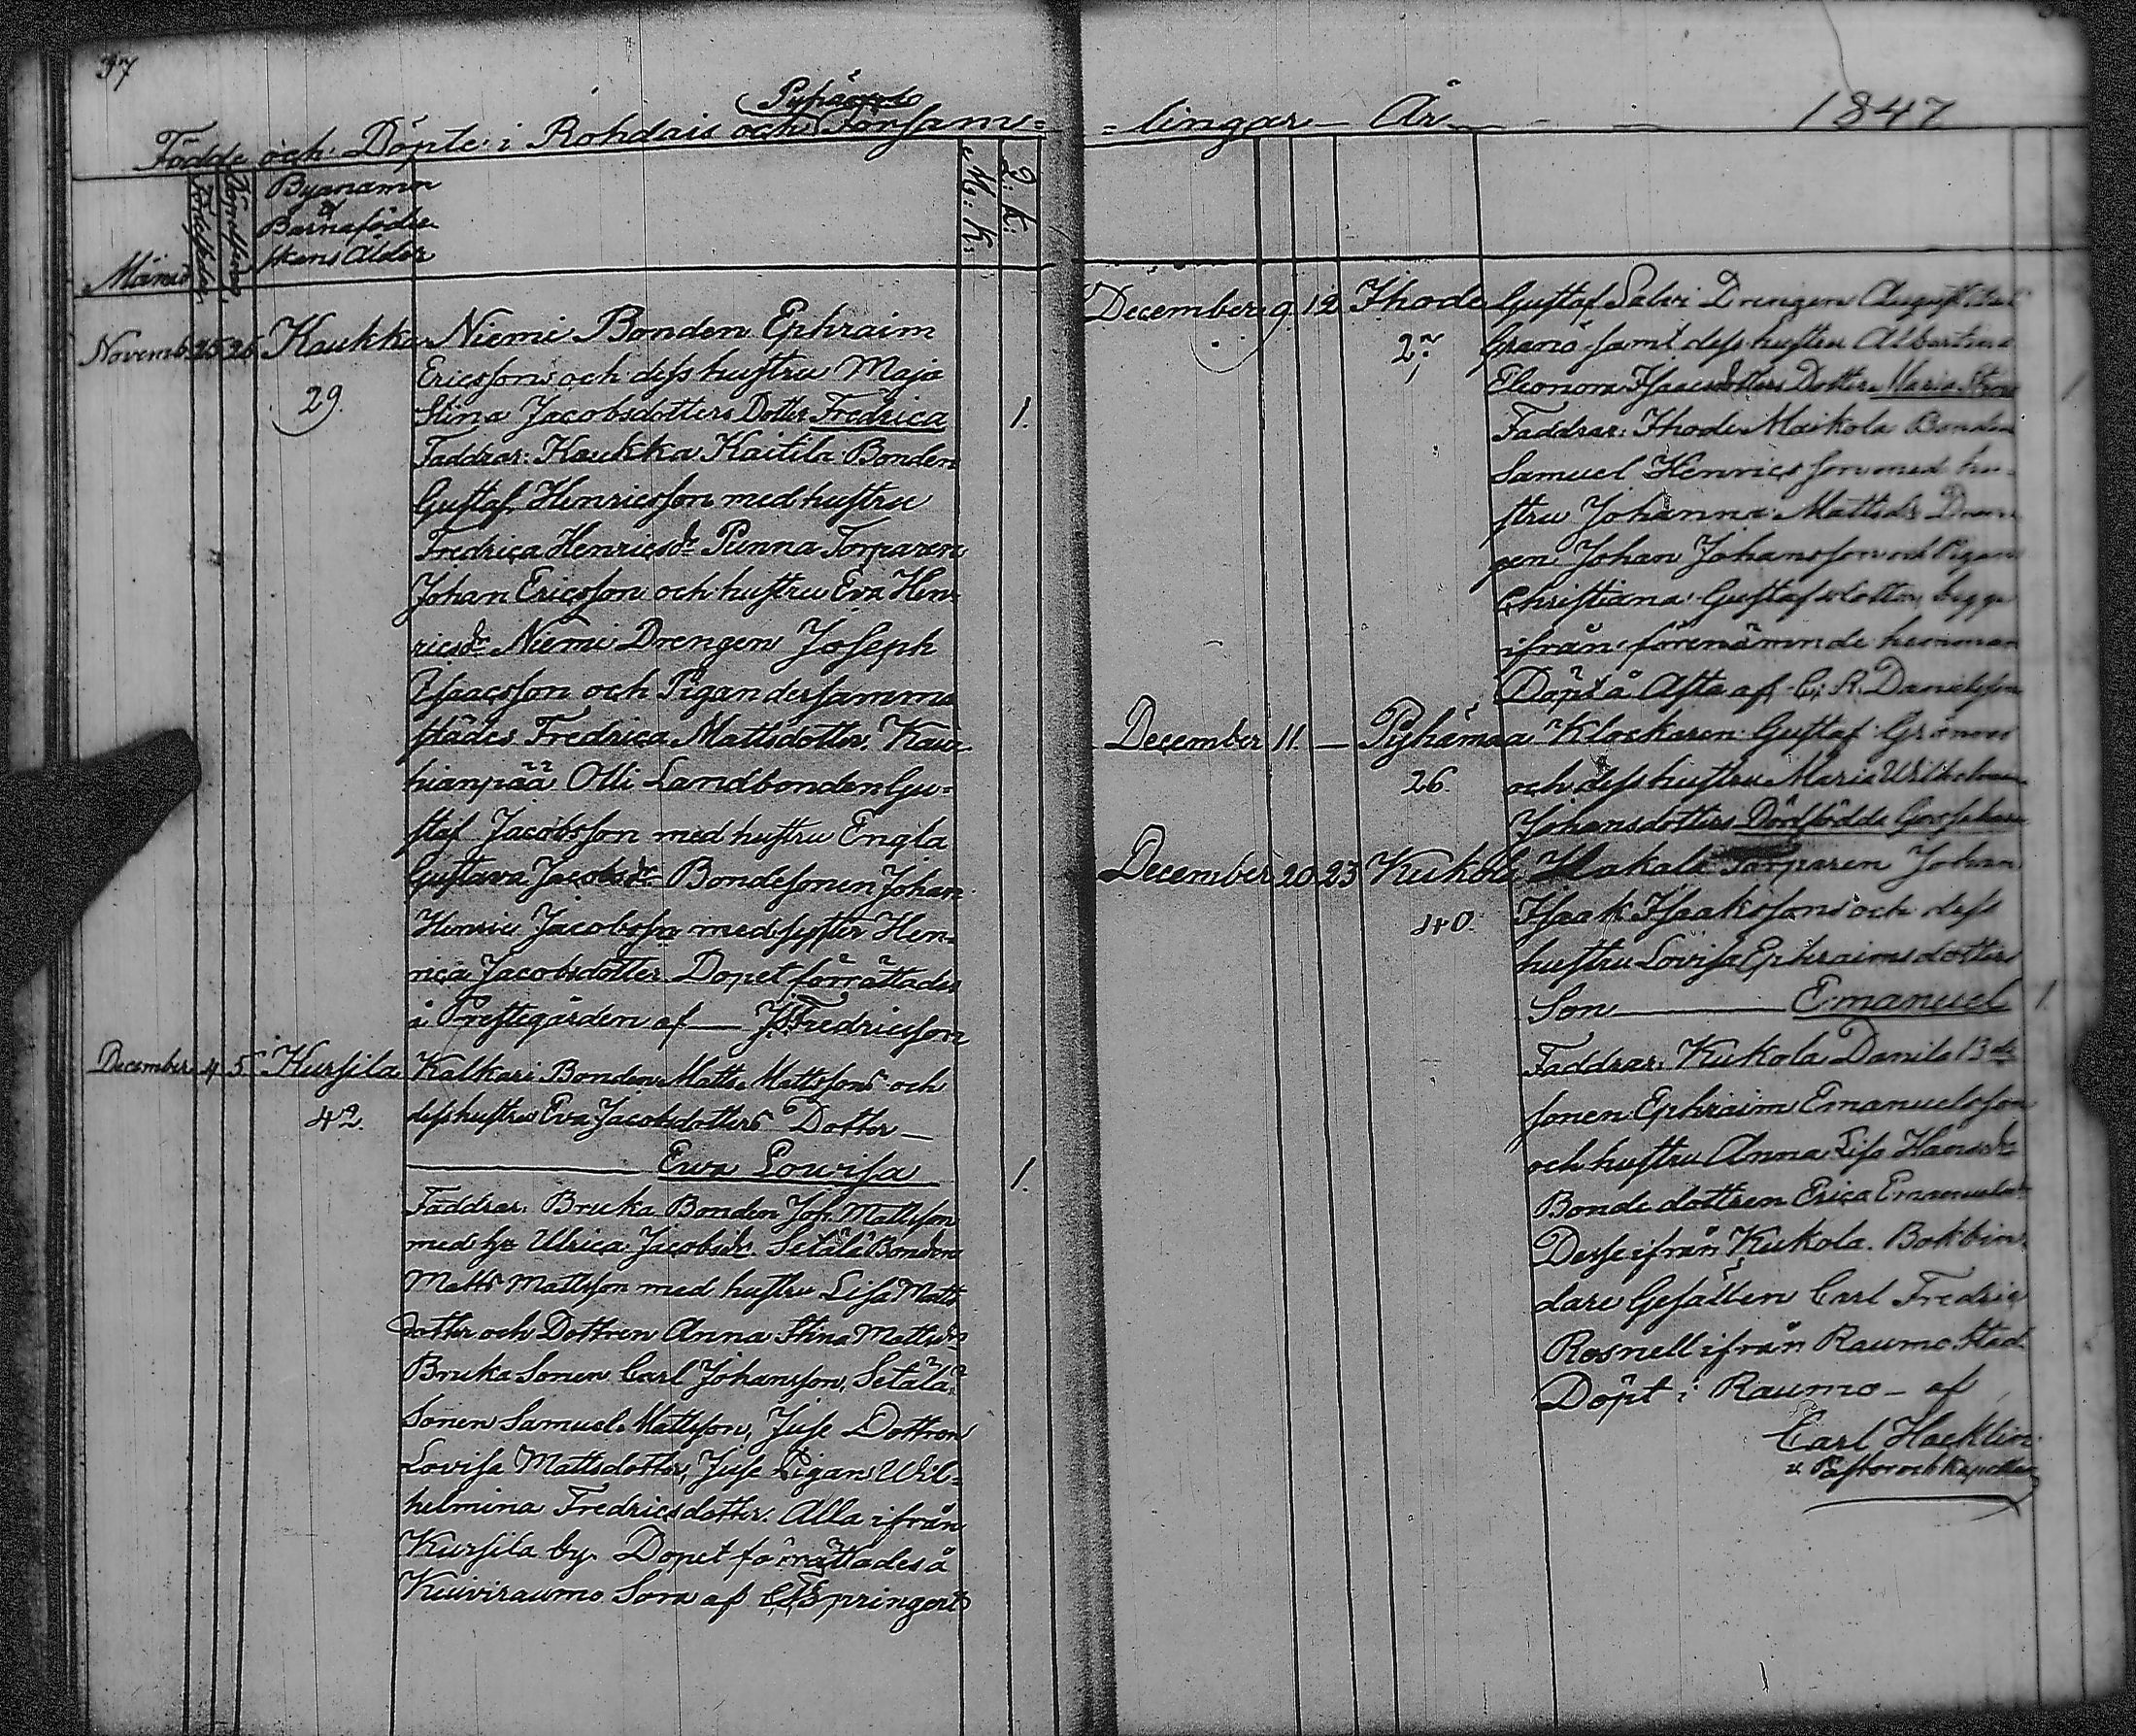 37
Pyhämaa
Födde och Döpte i Rohdais och Församlingar År 1847
Månad
Födelsedag
Döpelsedag
Byanamn
&
Barnaföder
skans Ålder
M: K.
Q: K.
Novemb. 25 26 Kaukka Niemi Bonden Ephraim
29.
Ericssons och dess hustru Maja
Stina Jacobsdotters Dotter Fredrica 1.
Faddrar: Kaukka Kaitila Bonden
Gustaf Henricsson med hustru
Fredrica Henricsdr Punna Torparen
Johan Ericsson och hustru Eva Hen-
ricsdr Niemi Drengen Joseph
Isaacsson och Pigan dersamma
städes Fredrica Mattsdotter, Kau-
hianpää Olli Landbonden Gu-
staf Jacobsson med hustru Engla
Gustava Jacobsdr Bondesonen Johan
Henric Jacobsson med syster Hen-
rica Jacobsdotter Dopet förrättades
i Prestegården af — Fredricsson
December 4 5 Kursila Kalkari Bonden Matts Mattssons och
42.
dess hustrus Eva Jacobsdotters Dotter —
Ewa Lowisa 1.
Faddrar: Bruka Bonden Joh. Mattsson
med h: Ulrica Jacobsdr. Setälä Bonden
Matts Mattsson med hustru Lisa Matts
dotter och Dottren Anna Stina Mattsdr
Bruka Sonen Carl Johansson, Setälä
Sonen Samuel Mattsson, Juse Dottren
Lovisa Mattsdotter, Juse Pigan Wil-
helmina Fredricsdotter. Alla ifrån
Kursila by. Dopet förrättades å
Kuiviraumo Sora af Springert
December 9 12 Ihode Gustaf Salvi Drengen August
27
Granö samt dess hustru Albertina
Eleonora Isaacsdotters Dotter Maria Stina 1
Faddrar: Ihode Maikola Bonden
Samuel Henricsson med hu-
stru Johanna Mattsdr Dren-
gen Johan Johansson och Pigan
Christiana Gustafsdotter, begge
ifrån förenämnde hemman
Döpt å Asta af C. R. Danielsson
December 11. — Pyhämaa Klockaren Gustaf Grönroos
26.
och dess hustru Maria Wilhelmina
Johansdotters Dödfödde Gossebarn
December 20 23 Kukola Hakala Torparen Johan
40.
Isaak Isaakssons och dess
hustru Lovisa Ephraimsdotters
Son — Emanuel 1.
Faddrar: Kukola Danila Bde
sonen Ephraim Emanuelsson
och hustru Anna Lisa Hansdr
Bonde dottren Erica Emanuelsdr
Desse ifrån Kukola. Bokbin
dare Gesällen Carl Fredric
Rosnell ifrån Raumo Stad.
Döpt i Raumo — af
Carl Hacklin
v. Pastor och Kapellan